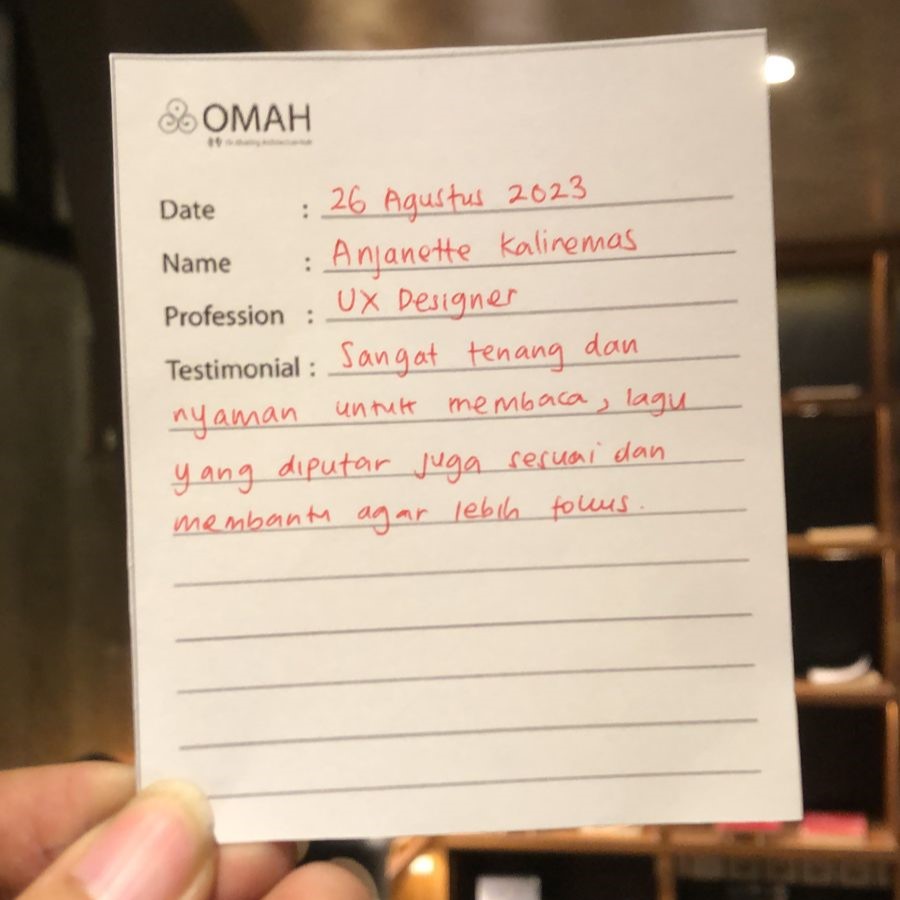 OMAH
Date : 26 Agustus 2023
Name : Anjanette Kalinemas
Profession : UX Designer
Testimonial : Sangat tenang dan
nyaman untuk membaca, lagu
yang diputar juga sesuai dan
membantu agar lebih fokus.